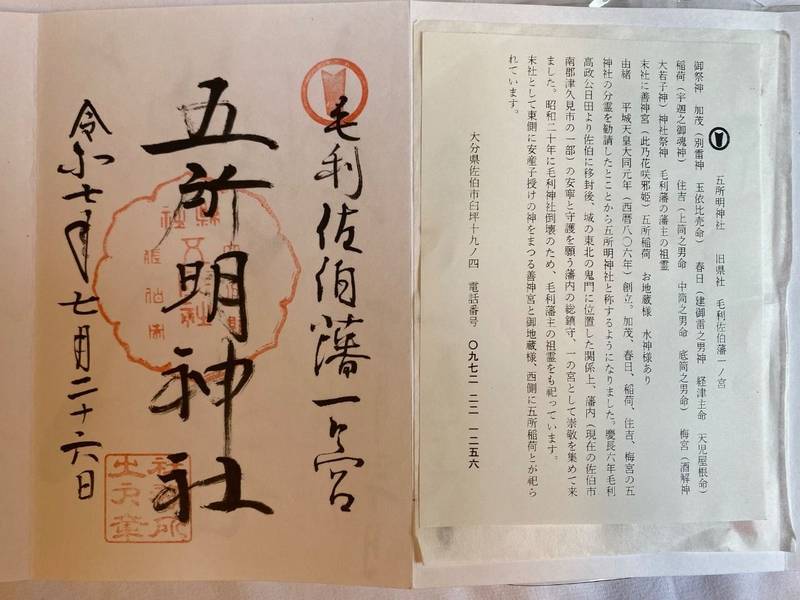 五所明神社　旧県社　毛利佐伯藩一ノ宮
御祭神　加茂（別雷神　玉依比売命）　春日（建御雷之男神　経津主命　天児屋根命）
稲荷（宇迦之御魂神）　住吉（上筒之男命　中筒之男命　底筒之男命）　梅宮（酒解神
大若子神）神社祭神　毛利藩の藩主の祖霊
末社に善神宮（此乃花咲邪姫）五所稲荷　お地蔵様　水神様あり
由緒　平城天皇大同元年（西暦八〇六年）創立。加茂、春日、稲荷、住吉、梅宮の五
神社の分霊を勧請したとことから五所明神社と称するようになりました。慶長六年毛利
高政公日田より佐伯に移封後、城の東北の鬼門に位置した関係上、藩内（現在の佐伯市
南郡津久見市の一部）の安寧と守護を願う藩内の総鎮守、一の宮として崇敬を集めて来
ました。昭和二十年に毛利神社倒壊のため、毛利藩主の祖霊をも祀っています。
末社として東側に安産子授けの神をまつる善神宮と御地蔵様、西側に五所稲荷とが祀ら
れています。
大分県佐伯市臼坪十九ノ四　電話番号　〇九七二　二二　一二五六
毛利佐伯藩一之宮
五所明神社
令和七年七月二十六日